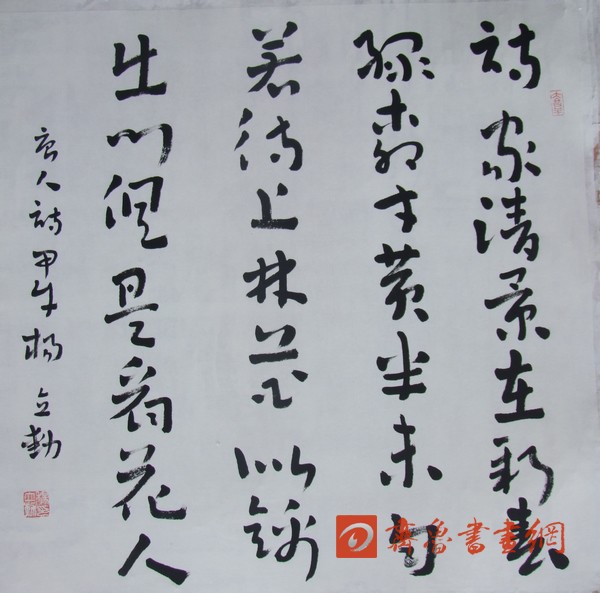 詩家清景在新春
綠柳才黄半未匀
若待上林花似錦
出门俱是看花人
唐人詩甲午楊立勤
齊魯書畫網